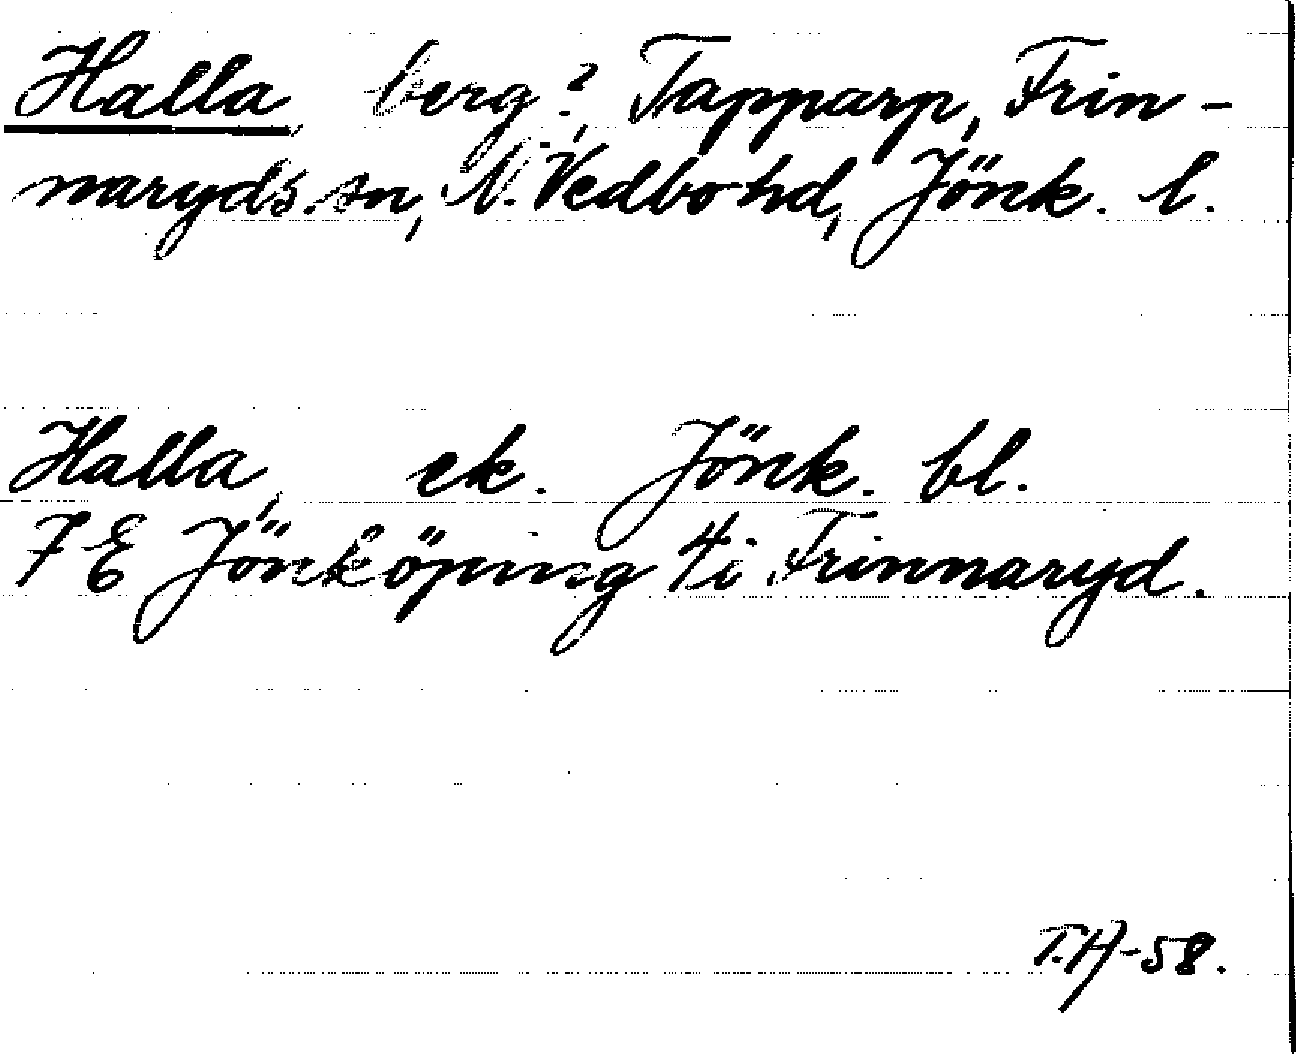 Halla, berg?, Tapparp, Frin-
naryds sn, N. Vedbo hd, Jönk. l.
Halla, ek. Jönk. bl.
7 E Jönköping 4i Frinnaryd.
T.H-58.